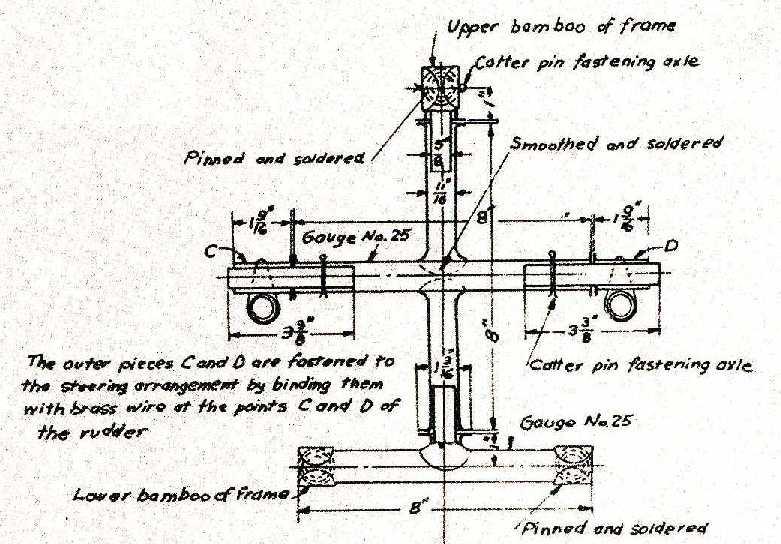 Upper bamboo of frame
Cotter pin fastening axle
1"
Pinned and soldered
5/8
Smoothed and soldered
11/16"
1 9/16"
8"
1 9/16"
C
Gauge No. 25
D
3 3/8"
8"
3 3/8"
The outer pieces C and D are fastened to
the steering arrangement by binding them
with brass wire at the points C and D of
the rudder
Cotter pin fastening axle
Gauge No. 25
1"
Lower bamboo of frame
8"
Pinned and soldered